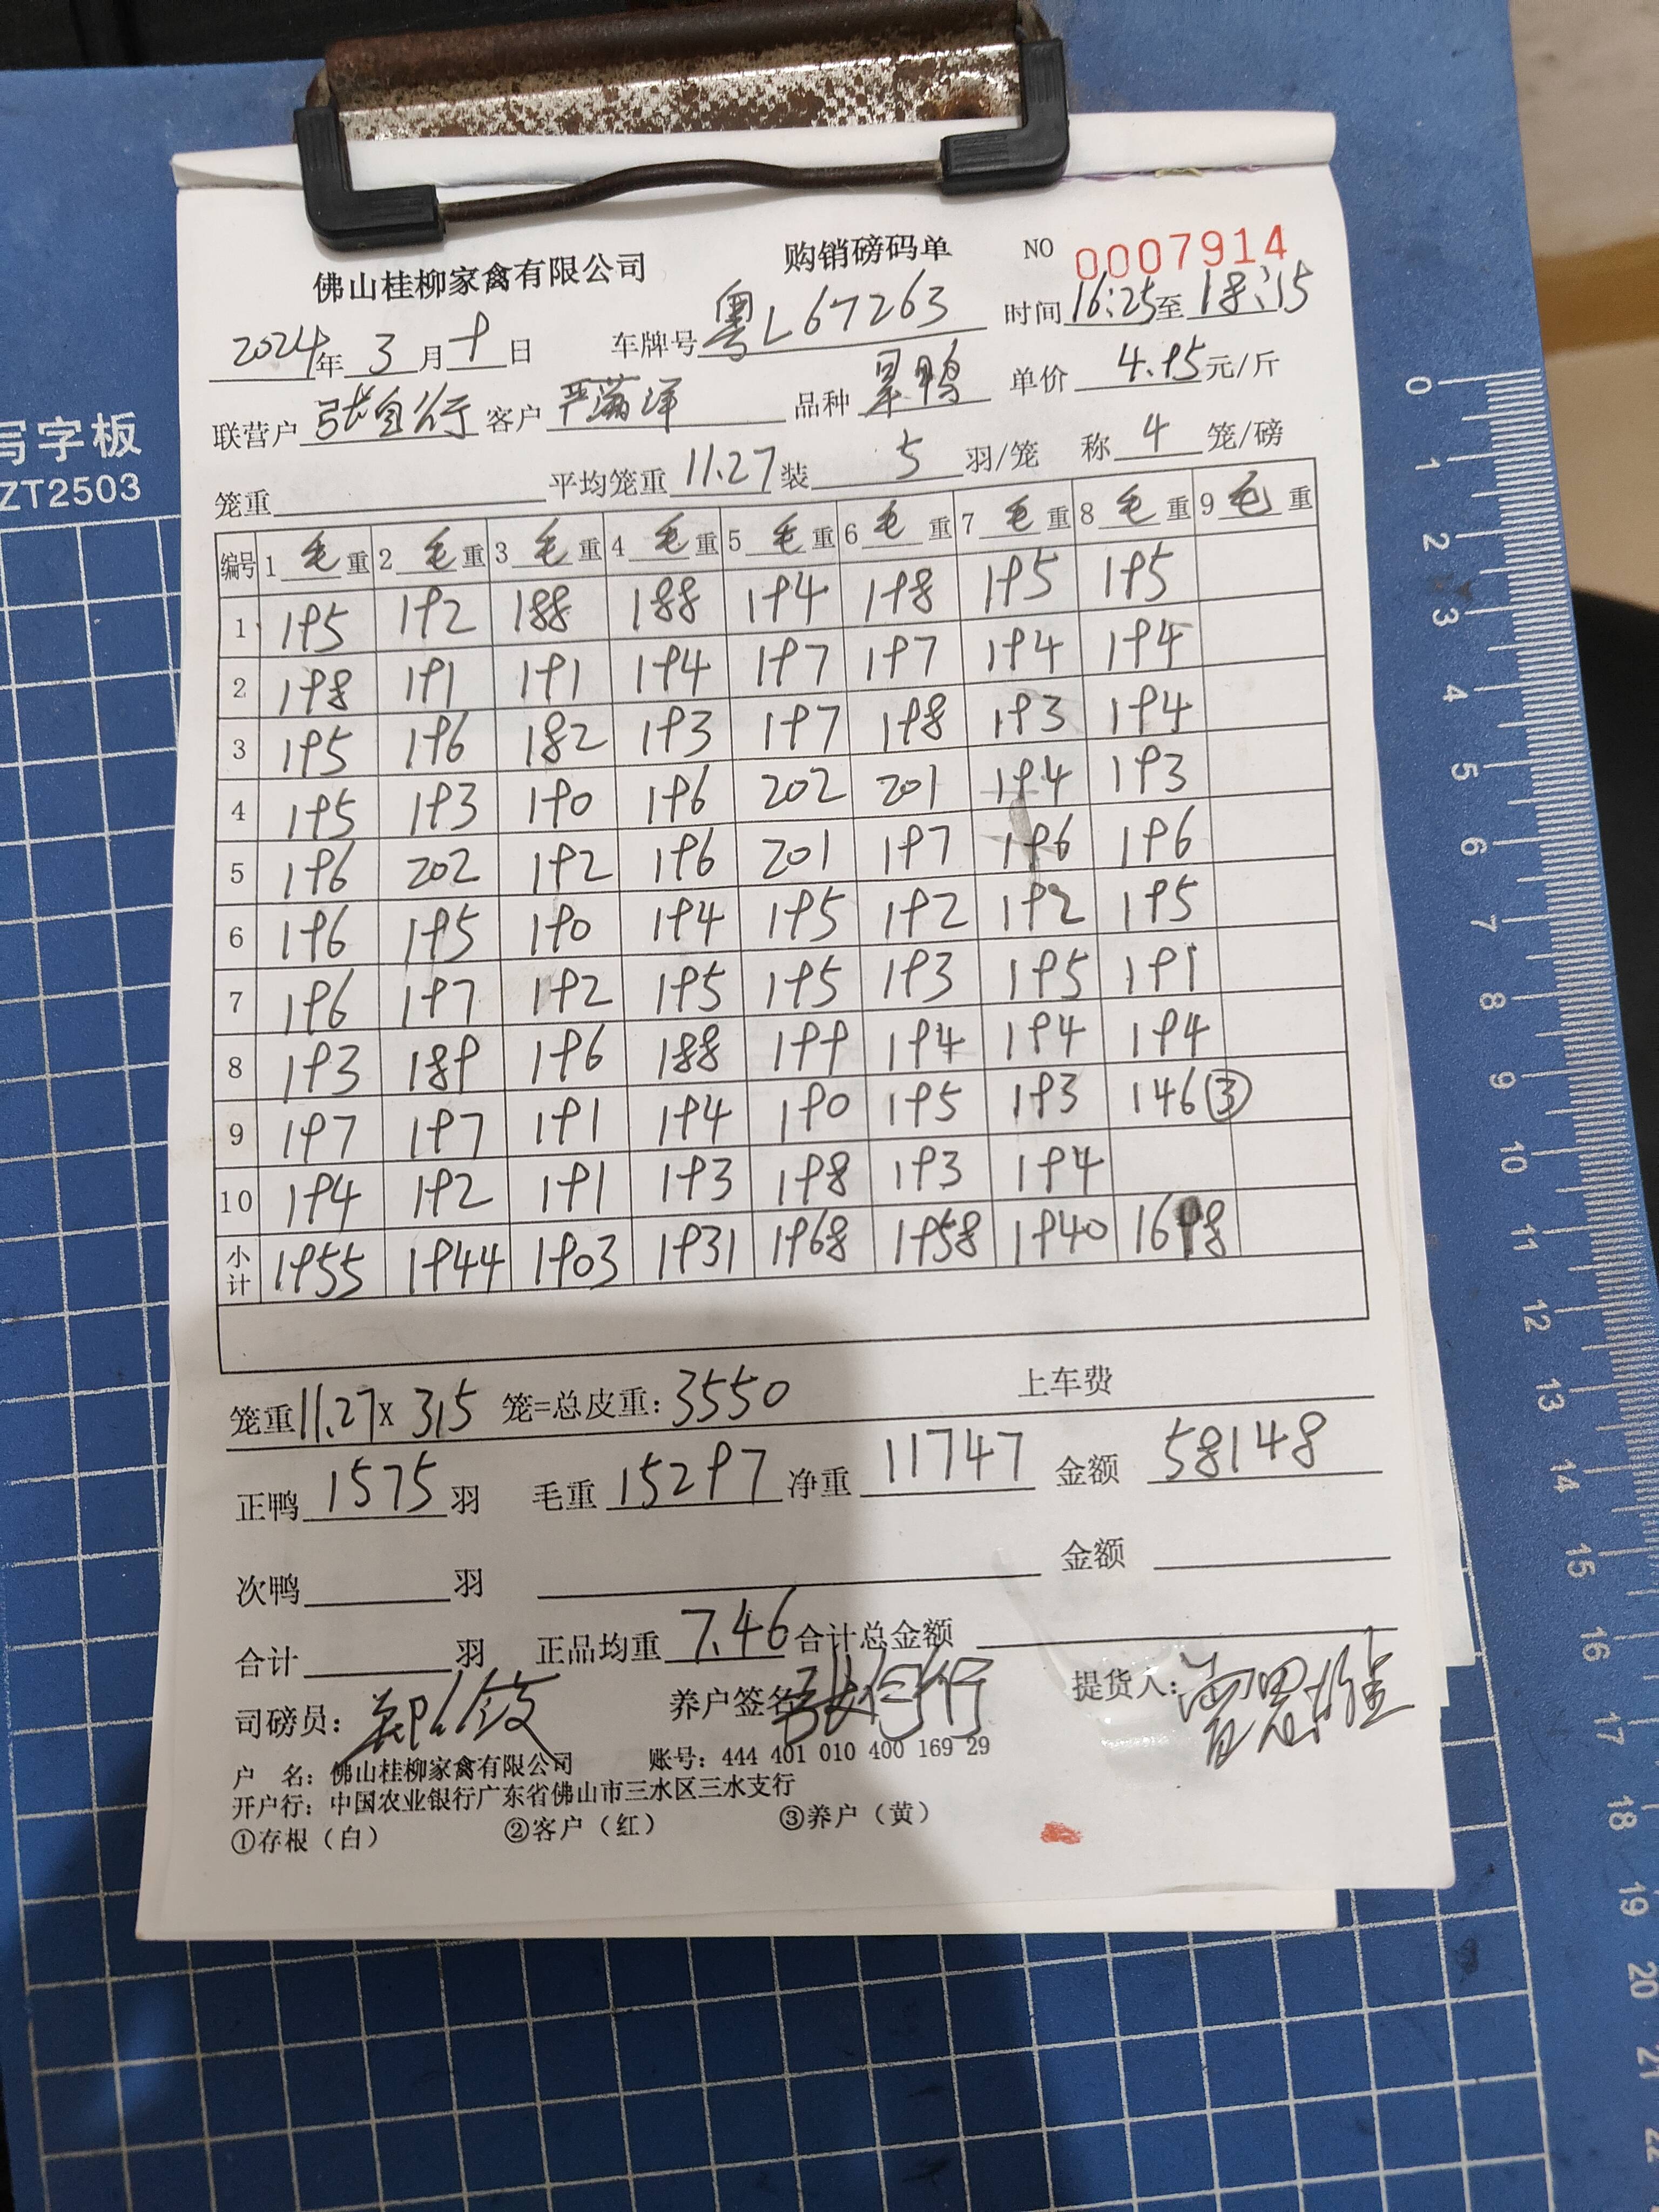 佛山桂柳家禽有限公司 购销磅码单 NO 0007914
2024年 3 月 9 日 车牌号 粤L67263 时间 16:25 至 18:15
联营户 张自行 客户 严满洋 品种 单价 4.95 元/斤
笼重 平均笼重 11.27 装 5 羽/笼 称 4 笼/磅
编号 1 毛 重 2 毛 重 3 毛 重 4 毛 重 5 毛 重 6 毛 重 7 毛 重 8 毛 重 9 毛 重
1 195 192 188 188 194 198 195 195
2 198 191 191 194 197 197 194 194
3 195 196 182 193 197 198 193 194
4 195 193 190 196 202 201 194 193
5 196 202 192 196 201 197 196 196
6 196 195 190 194 195 192 192 195
7 196 197 192 195 195 193 195 191
8 193 189 196 188 199 194 194 194
9 197 197 191 194 190 195 193 146③
10 194 192 191 193 198 193 194
小计 1955 1944 1903 1931 1968 1958 1940 1698
笼重 11.27 x 315 笼=总皮重: 3550 上车费
正鸭 1575 羽 毛重 15297 净重 11747 金额 58148
次鸭 羽 金额
合计 羽 正品均重 7.46 合计总金额
司磅员: 养户签名 提货人:
户 名: 佛山桂柳家禽有限公司 账号: 444 401 010 400 169 29
开户行: 中国农业银行广东省佛山市三水区三水支行
①存根（白） ②客户（红） ③养户（黄）
写字板
ZT2503
0
1
2
3
4
5
6
7
8
9
10
11
12
13
14
15
16
17
18
19
20
21
22